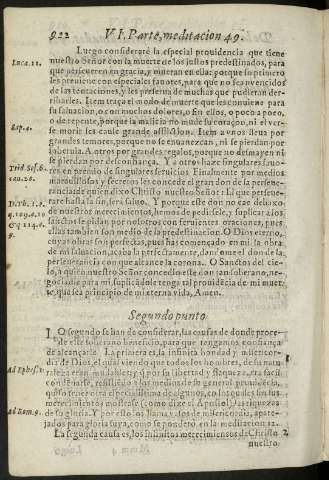 922 VI. Parte, meditacion 49.
Luego consideraré la especial prouidencia que tiene
nuestro Señor con la muerte de los justos predestinados, para
que perseueren en gracia, y mueran en ella: porque su primero
les preuiene con especiales fauores, para que no sean vencidos
de las tentaciones, y les preserua de muchas que pudieran der-
ribarles. Item traça el modo de muerte que les conuiene para
su saluacion, o con muchos dolores, o sin ellos, o poco a poco,
o de repente, porque la malicia no mude su coraçon, ni el ver-
se morir les cause grande afliccion. Item a vnos lleua por
grandes temores, porque no se enuanezcan, ni se pierdan por
soberuia. A otros por grandes regalos, porque no desmayen ni
se pierdan por desconfiança. Y a otros haze singulares fauo-
res en premio de singulares seruicios. Finalmente por medios
marauillosos y secretos les concede el gran don de la perseue-
rancia de quien dixo Christo nuestro Señor: El que perseue-
rare hasta la fin, será saluo. Y porque este don no cae debaxo
de nuestros merecimientos, hemos de pedirsele, y suplicar a los
santos le pidan por nosotros con feruientes oraciones, pues
ellas tambien son medio de la predestinacion. O Dios eterno,
cuyas obras son perfectas, pues has començado en mi la obra
de mi saluacion, acaba la perfectamente, dame el don de la
perseuerancia con que alcance la corona. O Santos del cie-
lo, a quien nuestro Señor concedio este don tan soberano, ne-
gociadle para mi, suplicadole tenga tal prouidencia de mi muer-
te, que sea principio de mi eterna vida, Amen.
Segundo punto
LO segundo se han de considerar, las causas de donde proce-
de este soberano beneficio, para que tengamos confiança
de alcançarle. La primera es, la infinita bondad y misericor-
dia de Dios, el qual viendo que todos los hombres, de su na-
turaleza eran mudables, y q̃ por su libertad y flaqueza,
condenarse, resistiendo a los medios de su general prouidencia,
quiso tener otra especialissima de algunos, en los quales sin sus
merecimientos mostrasse (como dize el Apostol) las riquezas
de su gloria. Y por esto los llama vasos de misericordia, apare-
jados para gloria suya, como se ponderó en la meditacion 12.
La segunda causa es, los infinitos merecimientos de Christo
nuestro
Luca. 22.
Sap. 4.
D. Th. 1. 2.
Ad Ephes. 1.
Ad Rom. 9.